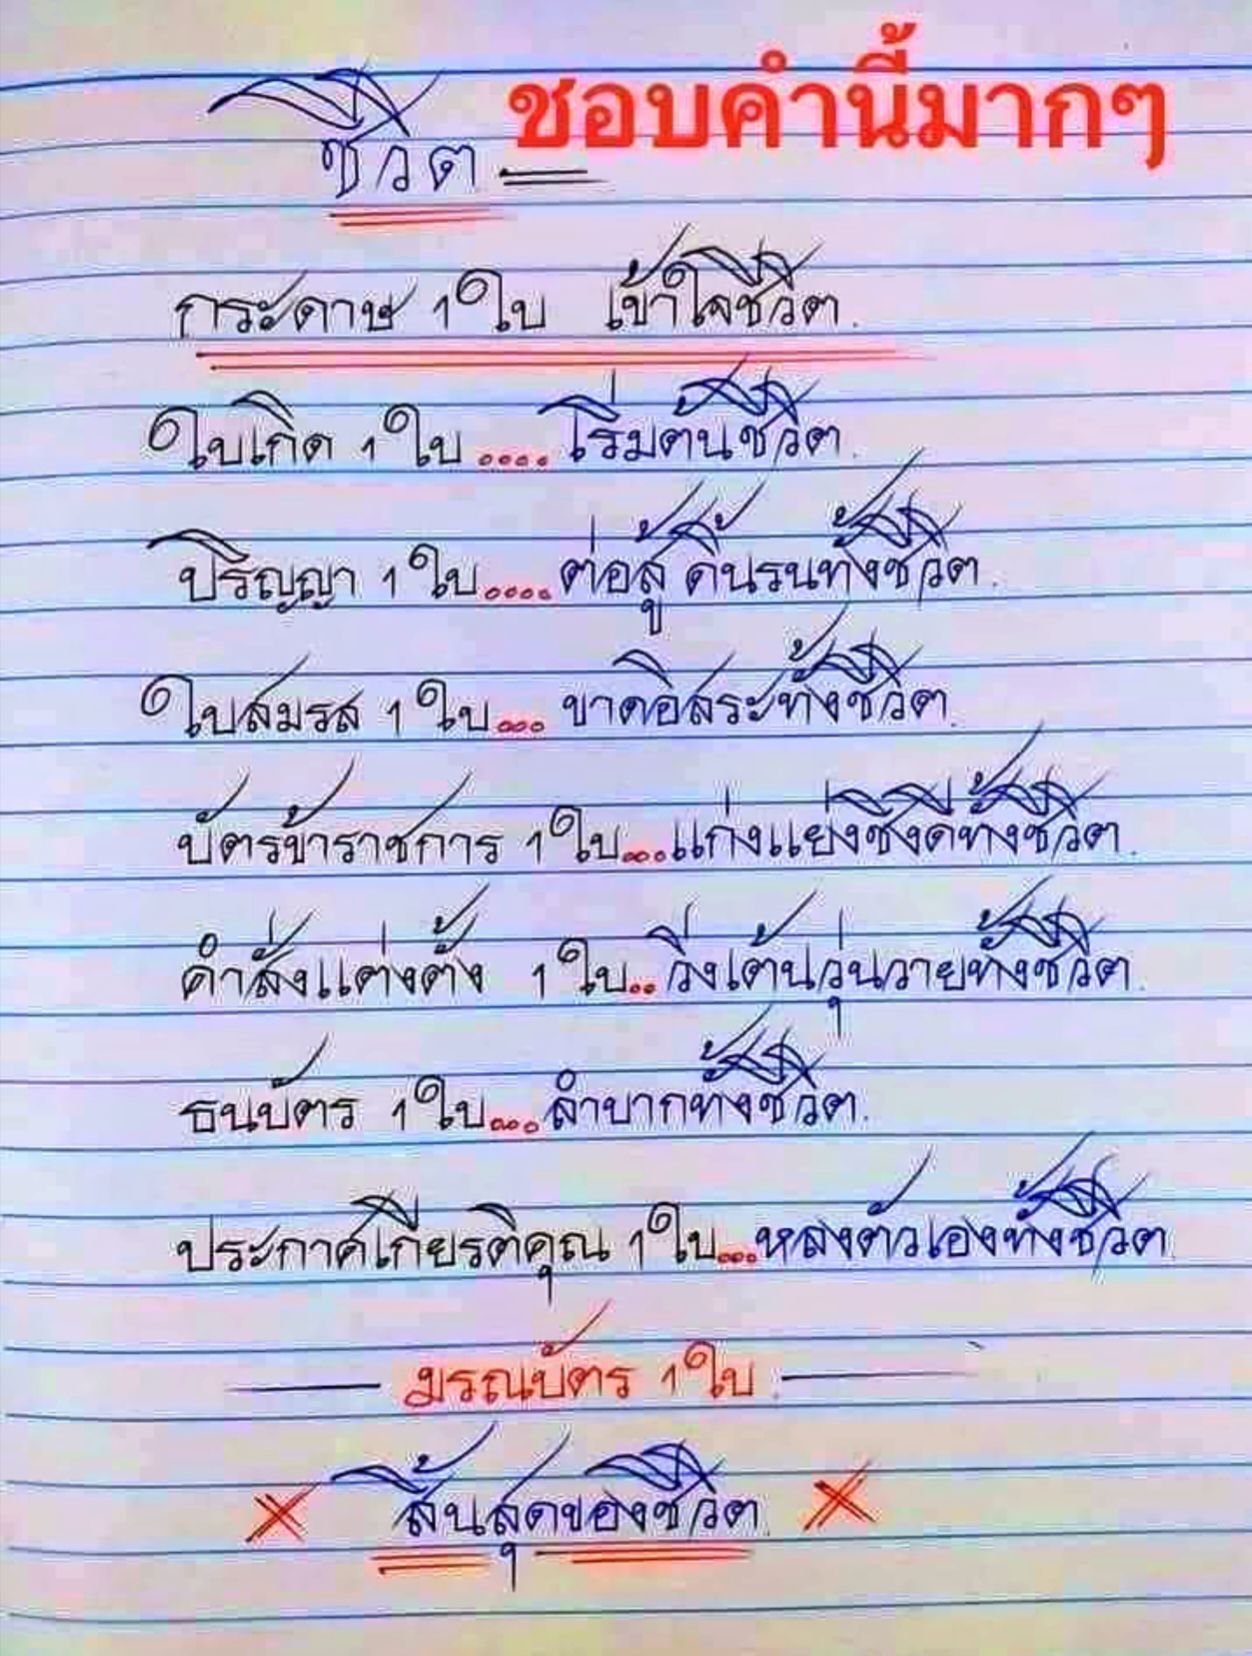 ชอบคำนี้มากๆ
ชีวิต
กระดาษ 1 ใบ เข้าใจชีวิต.
ใบเกิด 1 ใบ .... เริ่มต้นชีวิต.
ปริญญา 1 ใบ.... ต่อสู้ ดิ้นรนทั้งชีวิต.
ใบสมรส 1 ใบ... ขาดอิสระทั้งชีวิต.
บัตรข้าราชการ 1 ใบ...แก่งแย่งชิงดีทั้งชีวิต.
คำสั่งแต่งตั้ง 1 ใบ.. วิ่งเต้นวุ่นวายทั้งชีวิต.
ธนบัตร 1 ใบ... ลำบากทั้งชีวิต.
ประกาศเกียรติคุณ 1 ใบ...หลงตัวเองทั้งชีวิต.
มรณบัตร 1 ใบ.
สิ้นสุดของชีวิต.